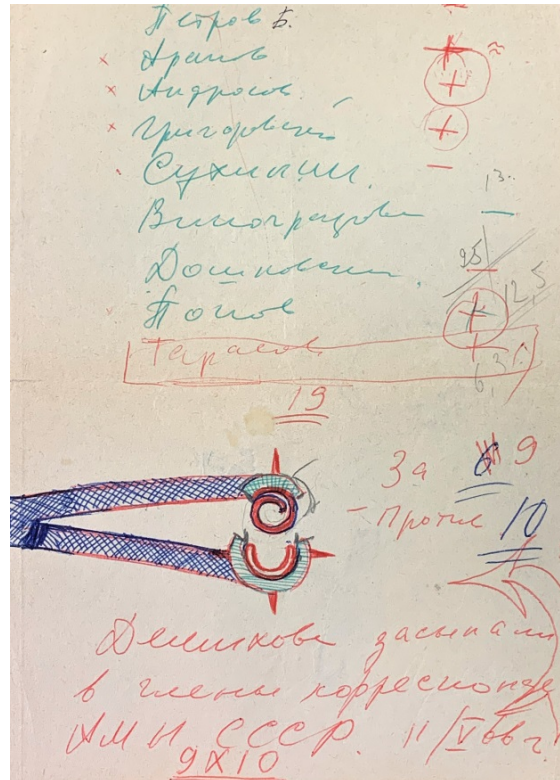 Петров Б. -
× Арапов + ≈
× Андросов +
× Григоровский +
Сухинин. -
Виноградова -
13.
95
Дошковский. -
12,5
Попов +
Тарасов +
6,3%
19
За 9
- Против 10
Демихова засыпали
в члены корреспонде
АМН СССР. 11/V 66 г.
9X10